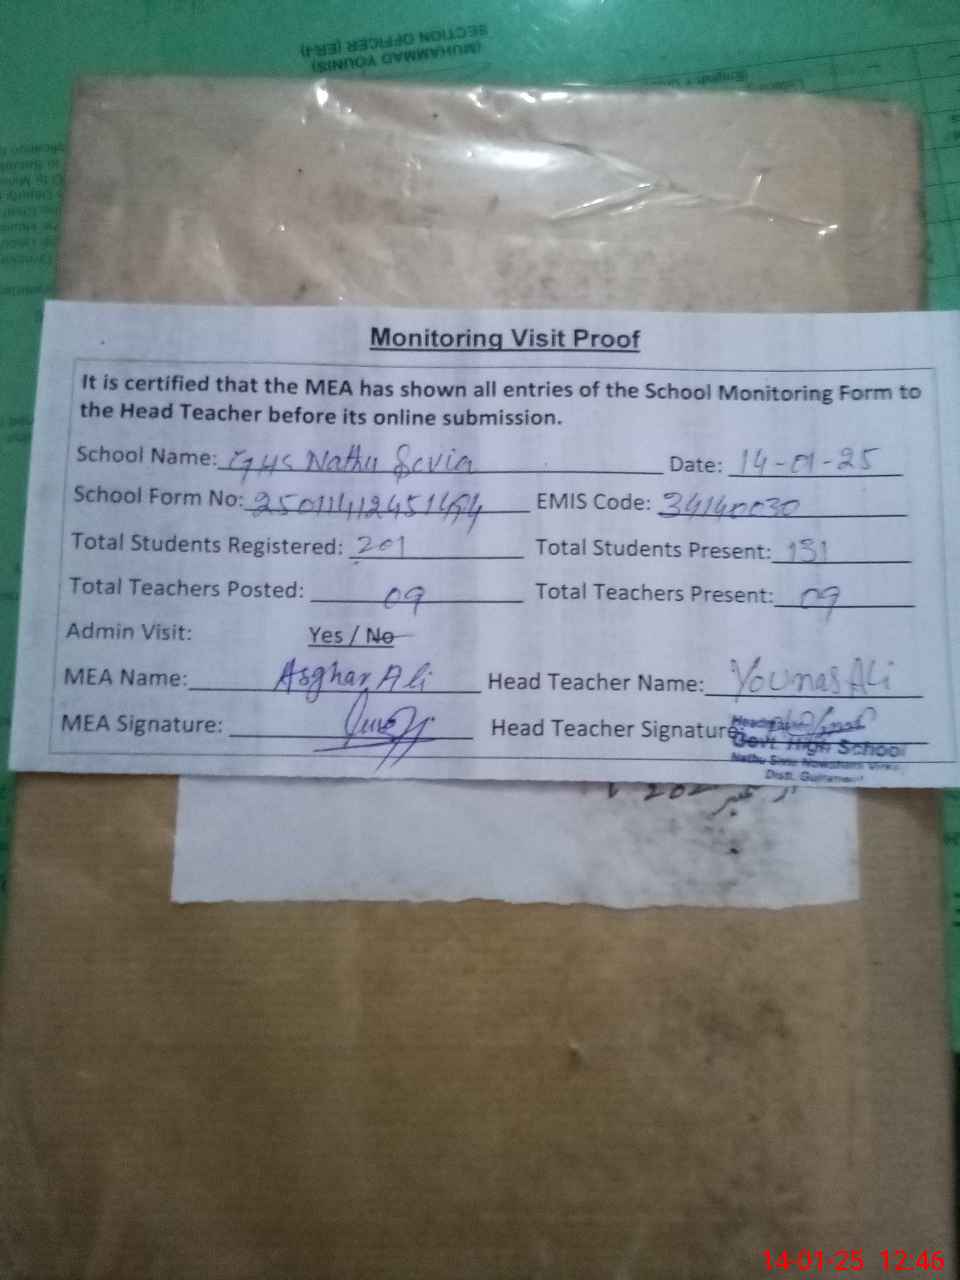 SECTION OFFICER (ER-I)
(MUHAMMAD YOUNIS)
Monitoring Visit Proof
It is certified that the MEA has shown all entries of the School Monitoring Form to
the Head Teacher before its online submission.
School Name: GHS Nathu Sivia Date: 14-01-25
School Form No: EMIS Code: 34140030
Total Students Registered: 201 Total Students Present: 151
Total Teachers Posted: 09 Total Teachers Present: 09
Admin Visit: Yes / No
MEA Name: Asghar Ali Head Teacher Name: Younas Ali
MEA Signature: Head Teacher Signature:
Govt. High School
Nathu Sivia Nowshera Virkan
Distt. Gujranwala
14-01-25 12:46